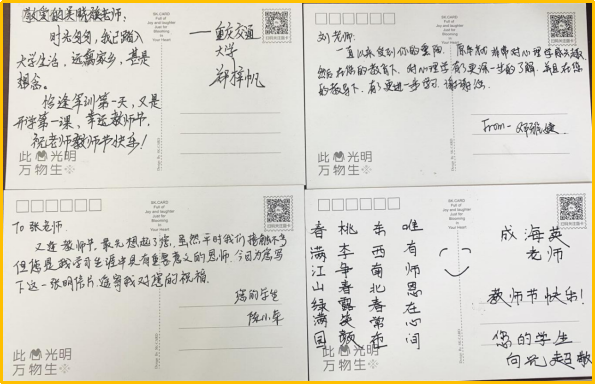 敬爱的吴晓薇老师:
时光匆匆,我已踏入
大学生活,远离家乡,甚是
想念。
恰逢军训第一天,又是
开学第一课,幸逢教师节。
祝老师教师节快乐!
——重庆交通
大学
郑梓帆
SK CARD
Full of
Joy and laughter
Just for
Blooming
In
Your Heart
此 光明
万物生
刘老师:
一直以来受到你的
然后在您的教育下,对心理学有了更深一步的了解,并且在您
的教导下,有了更进一步学习,谢谢您。
From-
SK CARD
Full of
Joy and laughter
Just for
Blooming
In
Your Heart
此 光明
万物生
To 张老师
又逢教师节,最先想起了您,虽然平时我们接触不多
但您是我学习生涯中具有重要意义的恩师,今日为您写
下这一张明信片,遥寄我对您的祝福。
您的学生
陈小军
SK CARD
Full of
Joy and laughter
Just for
Blooming
In
Your Heart
此 光明
万物生
唯有师恩在心间
东西南北春常在
桃李争春露笑颜
春满江山绿满园
成海英
老师
教师节快乐!
您的学生
向元超敏
SK CARD
Full of
Joy and laughter
Just for
Blooming
In
Your Heart
此 光明
万物生